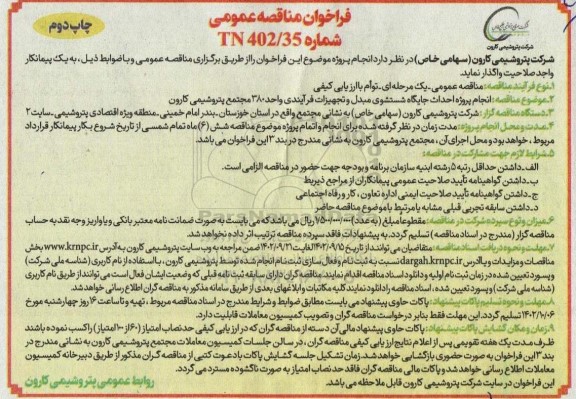 فراخوان مناقصه عمومی
شماره TN 402/35
چاپ دوم
شرکت پتروشیمی کارون
شرکت پتروشیمی کارون (سهامی خاص) در نظر دارد انجام پروژه موضوع این فراخوان را از طریق برگزاری مناقصه عمومی و با ضوابط ذیل، به یک پیمانکار
واجد صلاحیت واگذار نماید.
۱.نوع فرآیند مناقصه: مناقصه عمومی ـ یک مرحله‌ای ـ توأم با ارزیابی کیفی
۲.موضوع مناقصه: انجام پروژه احداث جایگاه شستشوی مبدل و تجهیزات فرآیندی واحد ۳۸۰ مجتمع پتروشیمی کارون
۳.دستگاه مناقصه گزار: شرکت پتروشیمی کارون (سهامی خاص) به نشانی مجتمع واقع در استان خوزستان ـ بندر امام خمینی ـ منطقه ویژه اقتصادی پتروشیمی ـ سایت ۲
۴.مدت و محل انجام پروژه: مدت زمان در نظر گرفته شده برای انجام و اتمام پروژه موضوع مناقصه شش (۶) ماه تمام شمسی از تاریخ شروع بکار پیمانکار قرارداد
مربوط، خواهد بود و محل اجرای آن، مجتمع پتروشیمی کارون به نشانی مندرج در بند ۳ این فراخوان می باشد.
۵.شرایط لازم جهت مشارکت در مناقصه:
الف ـ داشتن حداقل رتبه ۵ رشته ابنیه سازمان برنامه و بودجه جهت حضور در مناقصه الزامی است.
ب ـ داشتن گواهینامه تأیید صلاحیت عمومی پیمانکاران از مراجع ذیربط
ج ـ داشتن گواهینامه تأیید صلاحیت ایمنی اداره تعاون، کار و رفاه اجتماعی
د ـ داشتن سابقه تجربی قبلی مشابه یا مرتبط با موضوع مناقصه حاضر
۶.میزان و نوع سپرده شرکت در مناقصه: مقطوعاً مبلغ (به عدد) ۷۵۰/۰۰۰/۰۰۰ ریال می باشد که می بایست به صورت ضمانت نامه معتبر بانکی و یا واریز وجه نقد به حساب
مناقصه گزار (مندرج در اسناد مناقصه) تسلیم گردد. به پیشنهادات فاقد سپرده مناقصه ترتیب اثر داده نخواهد شد.
۷.مهلت و نحوه دریافت اسناد مناقصه: متقاضیان می توانند از تاریخ ۱۴۰۲/۰۹/۱۵ لغایت ۱۴۰۲/۰۹/۲۱ ضمن مراجعه به وب سایت پتروشیمی کارون به آدرس www.krnpc.ir بخش
مناقصات و مزایدات و یا آدرس dargah.krnpc.ir نسبت به ثبت نام و فعال سازی ثبت نام انجام شده توسط پتروشیمی کارون، با استفاده از نام کاربری (شناسه ملی شرکت)
و پسورد تعیین شده در زمان ثبت نام اولیه و دانلود اسناد مناقصه اقدام نمایند. مناقصه گران دارای سابقه ثبت نامه قبلی که وضعیت ایشان فعال است می توانند از طریق نام کاربری
(شناسه ملی شرکت) و پسورد تعیین شده، اسناد مناقصه را دانلود نمایند کلیه مکاتبات و ابلاغهای بعدی از طریق سامانه مذکور به مناقصه گران اطلاع رسانی خواهد شد.
۸.مهلت و نحوه تسلیم پاکات پیشنهاد: پاکات حاوی پیشنهاد می بایست مطابق ضوابط و شرایط مندرج در اسناد مناقصه مربوط، تهیه و تا ساعت ۱۶ روز چهارشنبه مورخ
۱۴۰۲/۱۰/۰۶ تسلیم گردد. این مهلت فقط بنابر درخواست مناقصه گران و تصویب کمیسیون معاملات قابلیت دارد.
۹.زمان و مکان گشایش پاکات پیشنهاد: پاکات حاوی پیشنهاد مالی آن دسته از مناقصه گران که در ارزیابی کیفی حد نصاب امتیاز (۶۰ از ۱۰۰ امتیاز) را کسب نموده باشند
ظرف مدت یک هفته تقویمی پس از اعلام نتایج ارزیابی کیفی مناقصه گران، در سالن جلسات کمیسیون معاملات مجتمع پتروشیمی کارون به نشانی مندرج در
بند ۳ این فراخوان به صورت حضوری بازگشایی خواهد شد. زمان تشکیل جلسه گشایش پاکات با دعوت کتبی از مناقصه گران مذکور از طریق دبیرخانه کمیسیون
معاملات اطلاع رسانی خواهد شد و پاکات مالی مناقصه گران فاقد حد نصاب امتیاز به صورت ناگشوده مسترد می گردد.
این فراخوان در سایت شرکت پتروشیمی کارون قابل ملاحظه می باشد.
روابط عمومی پتروشیمی کارون